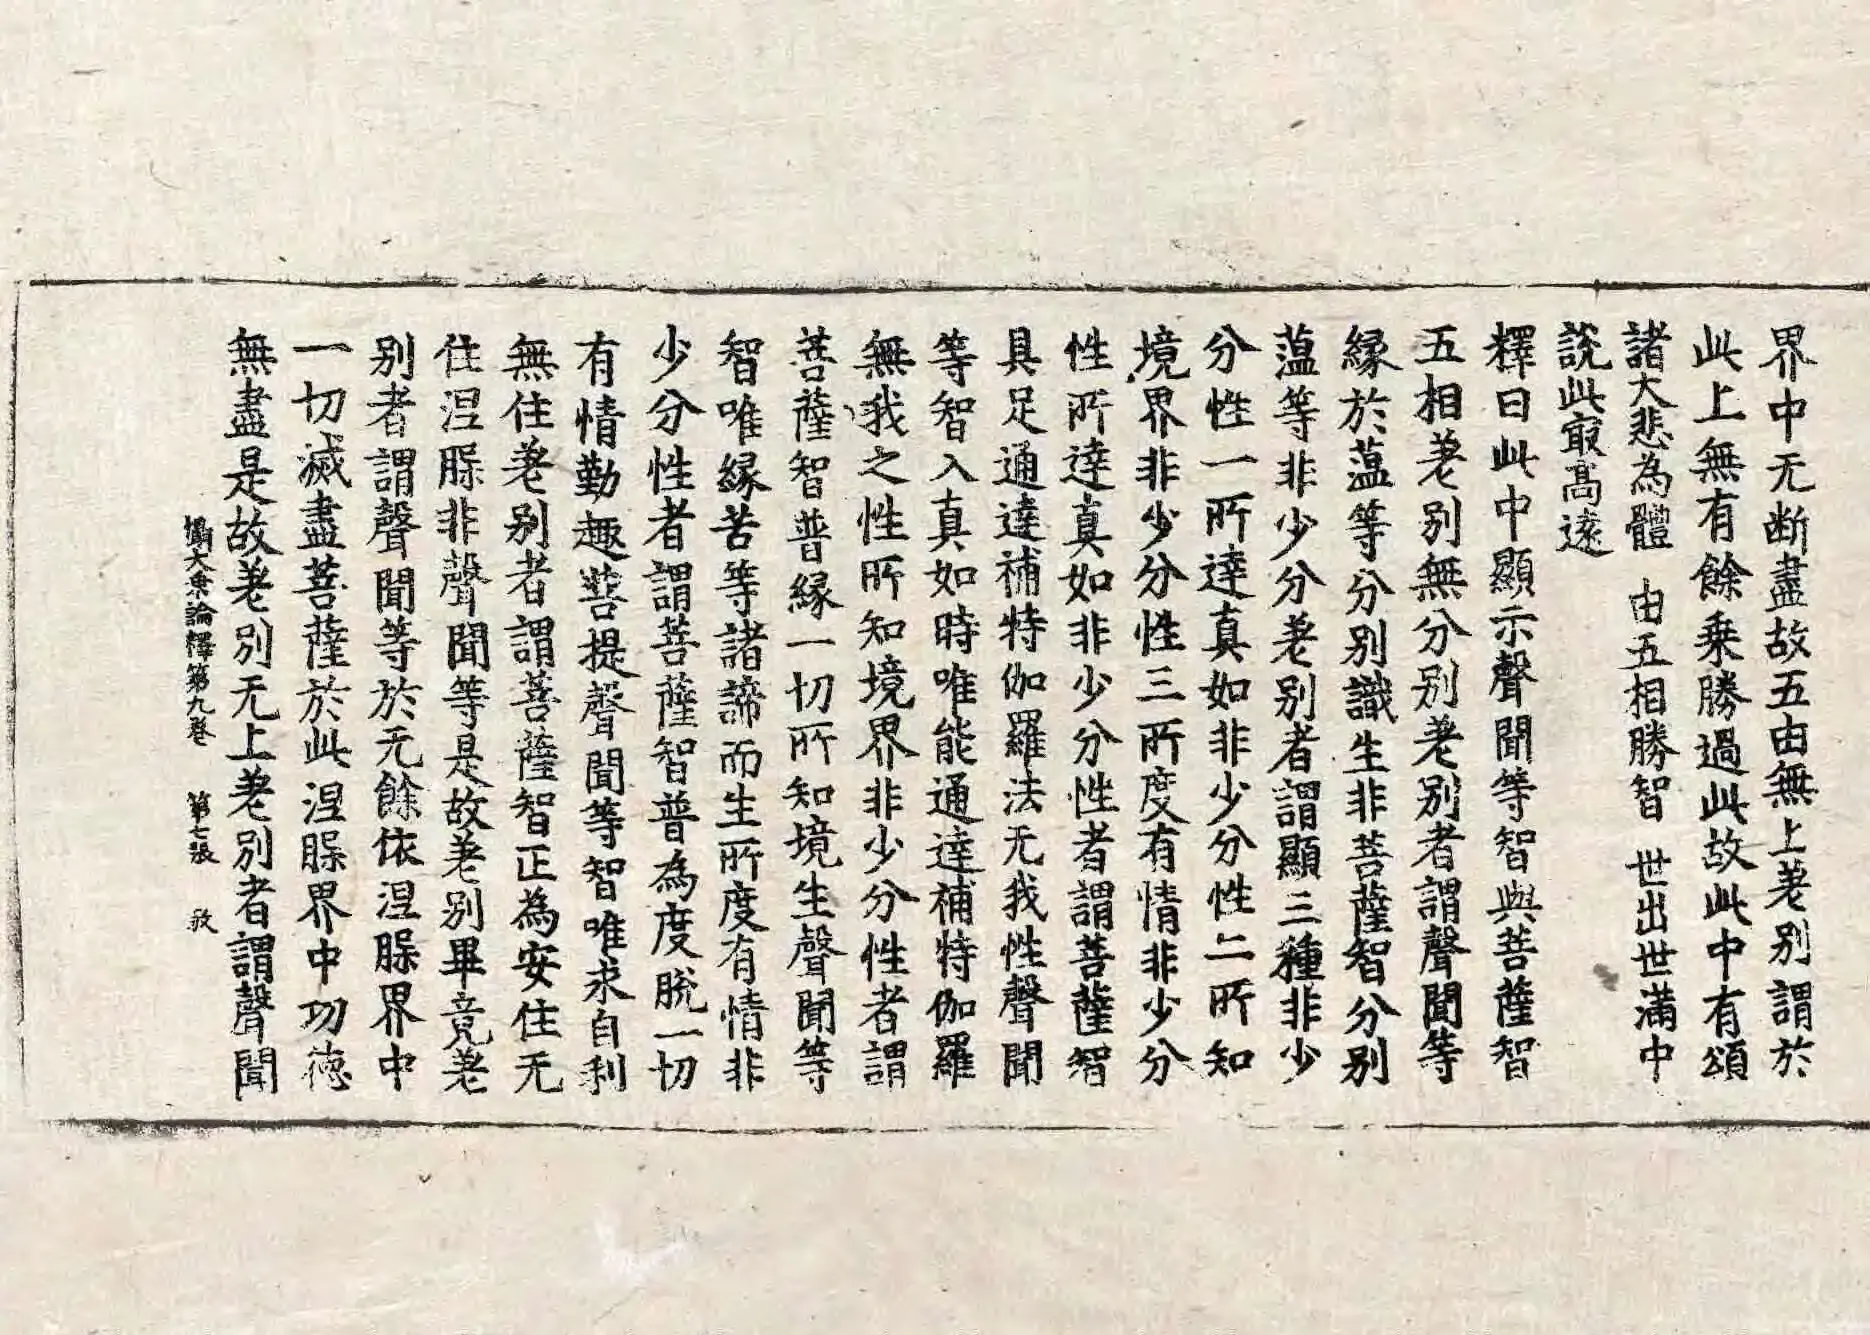 界中无断盡故五由無上差别謂於
此上無有餘乗勝過此故此中有頌
諸大悲為體　由五相勝智　世出世滿中
說此㝡髙遠
釋曰此中顯示聲聞等智與菩薩智
五相差别無分别差别者謂聲聞等
緣於薀等分别識生非菩薩智分别
薀等非少分差别者謂顯三種非少
分性一所達真如非少分性二所知
境界非少分性三所度有情非少分
性所達真如非少分性者謂菩薩智
具足通達補特伽羅法无我性聲聞
等智入真如時唯能通達補特伽羅
無我之性所知境界非少分性者謂
菩薩智普緣一切所知境生聲聞等
智唯緣苦等諸諦而生所度有情非
少分性者謂菩薩智普為度脫一切
有情勤趣菩提聲聞等智唯求自利
無住差别者謂菩薩智正為安住无
住涅槃非聲聞等是故差别畢竟差
别者謂聲聞等於无餘依涅槃界中
一切滅盡菩薩於此涅槃界中功德
無盡是故差别无上差别者謂聲聞
攝大乗論釋第九卷　第七張　攽